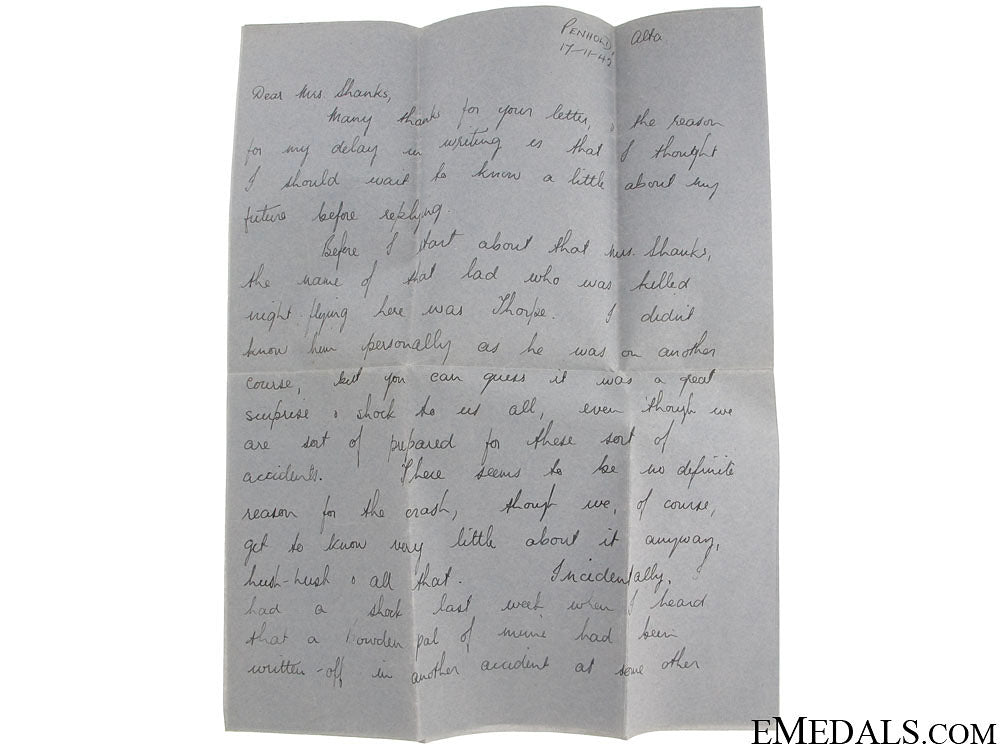 PENHOLD, Alta.
17-11-42
Dear Mrs. Shanks,
Many thanks for your letter, & the reason
for my delay in writing is that I thought
I should wait to know a little about my
future before replying.
Before I start about that Mrs. Shanks,
the name of that lad who was killed
night-flying here was Thorpe. I didn't
know him personally as he was on another
course, but you can guess it was a great
surprise & shock to us all, even though we
are sort of prepared for these sort of
accidents. There seems to be no definite
reason for the crash, though we, of course,
get to know very little about it anyway,
hush-hush & all that. Incidentally, I
had a shock last week when I heard
that a Bowden pal of mine had been
written-off, in another accident at some other
EMEDALS.COM